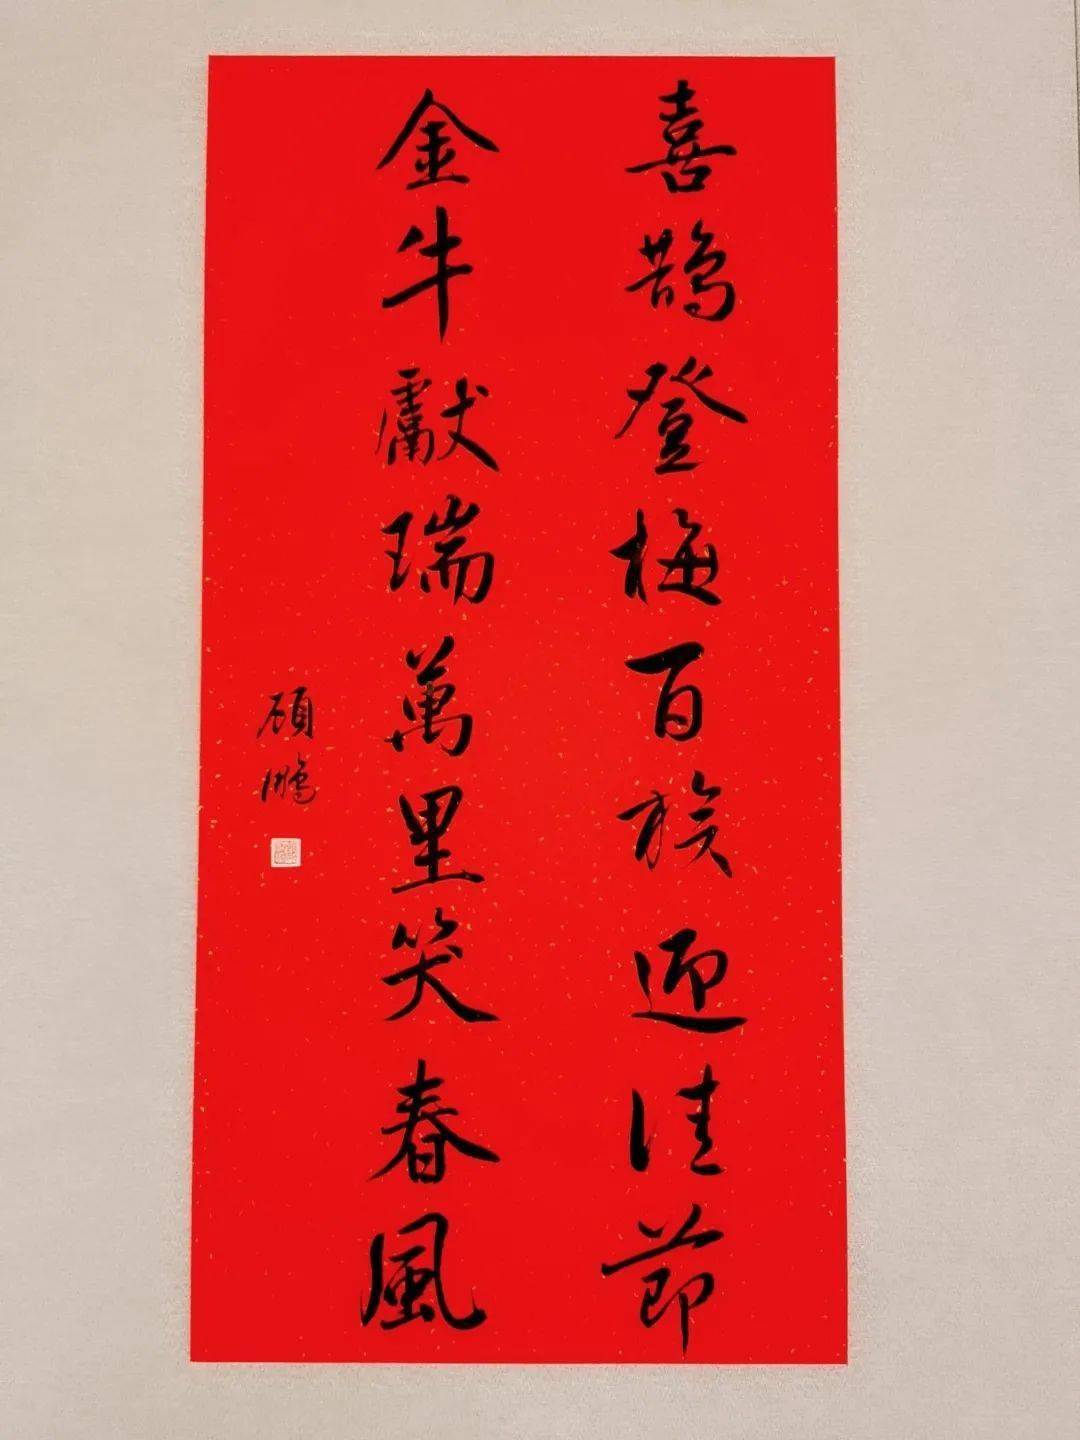 喜鵲登梅百族迎佳節
金牛獻瑞萬里笑春風
顧鵬